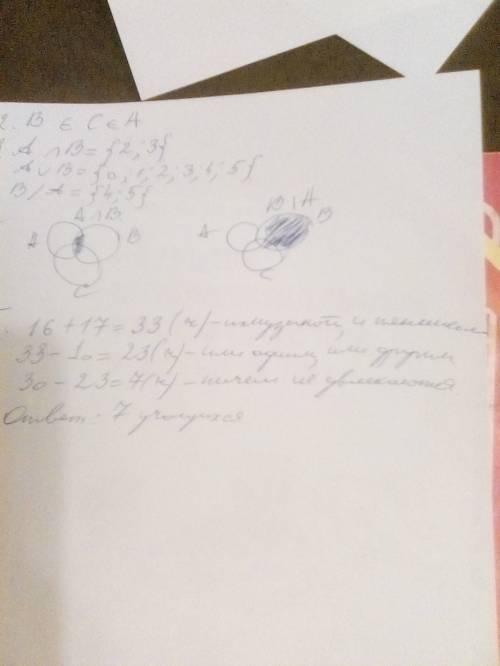 2. B ∈ C ∈ A
A ∩ B = {2; 3}
A ∪ B = {0, 1; 2; 3; 4; 5}
B / A = {4; 5}
A ∩ B
A B
C
B \ A
A B
C
16 + 17 = 33 (ч) - и музыкой и
33 - 10 = 23 (ч) - или одним, или другим
30 - 23 = 7 (ч) - ничем не увлекаются
Ответ: 7 учащихся